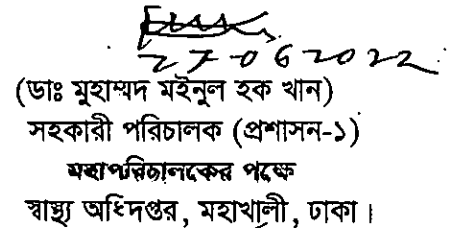 27-06-2022
(ডাঃ মুহাম্মদ মইনুল হক খান)
সহকারী পরিচালক (প্রশাসন-১)
মহাপরিচালকের পক্ষে
স্বাস্থ্য অধিদপ্তর, মহাখালী, ঢাকা।